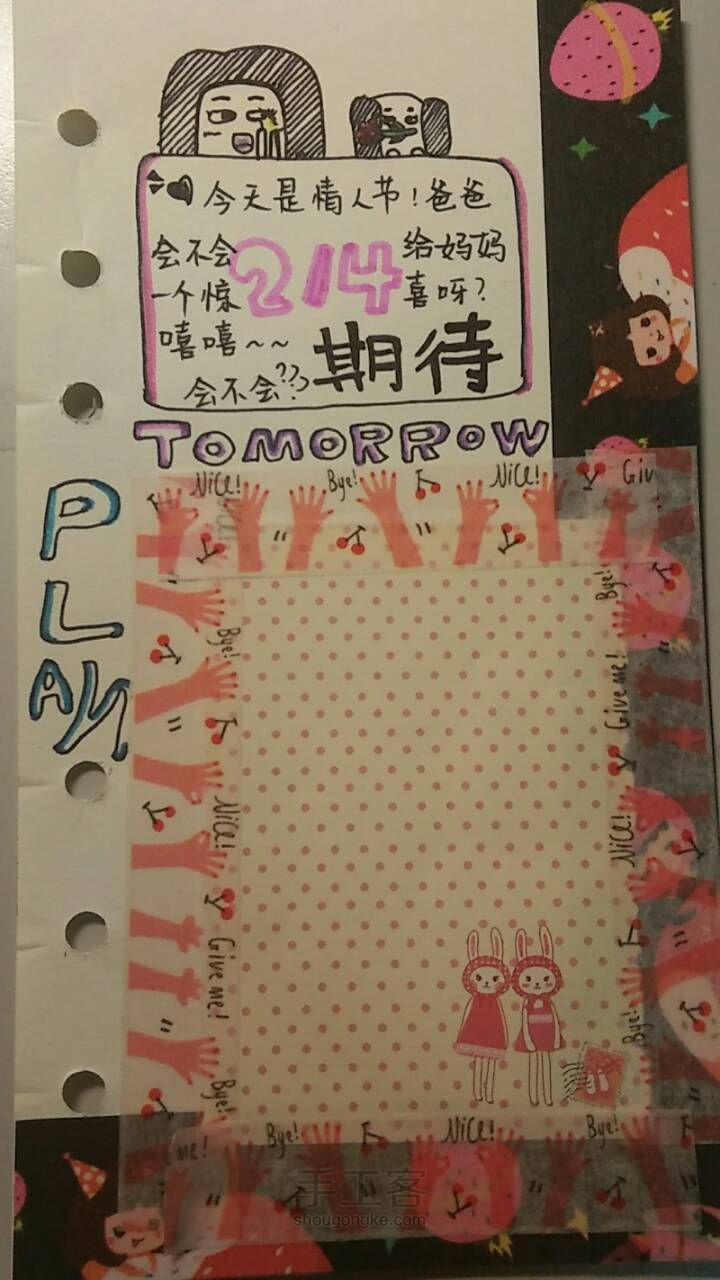 今天是情人节!爸爸
会不会 214 给妈妈
一个惊 喜呀?
嘻嘻~~ 期待
会不会??
TOMORROW
PLAN
Nice! Bye! Nice! Giv
Bye!
Bye!
Give me!
Nice!
Nice!
Give me!
Bye!
Bye!
me! Bye! Nice! Bye!
手工客
shougongke.com